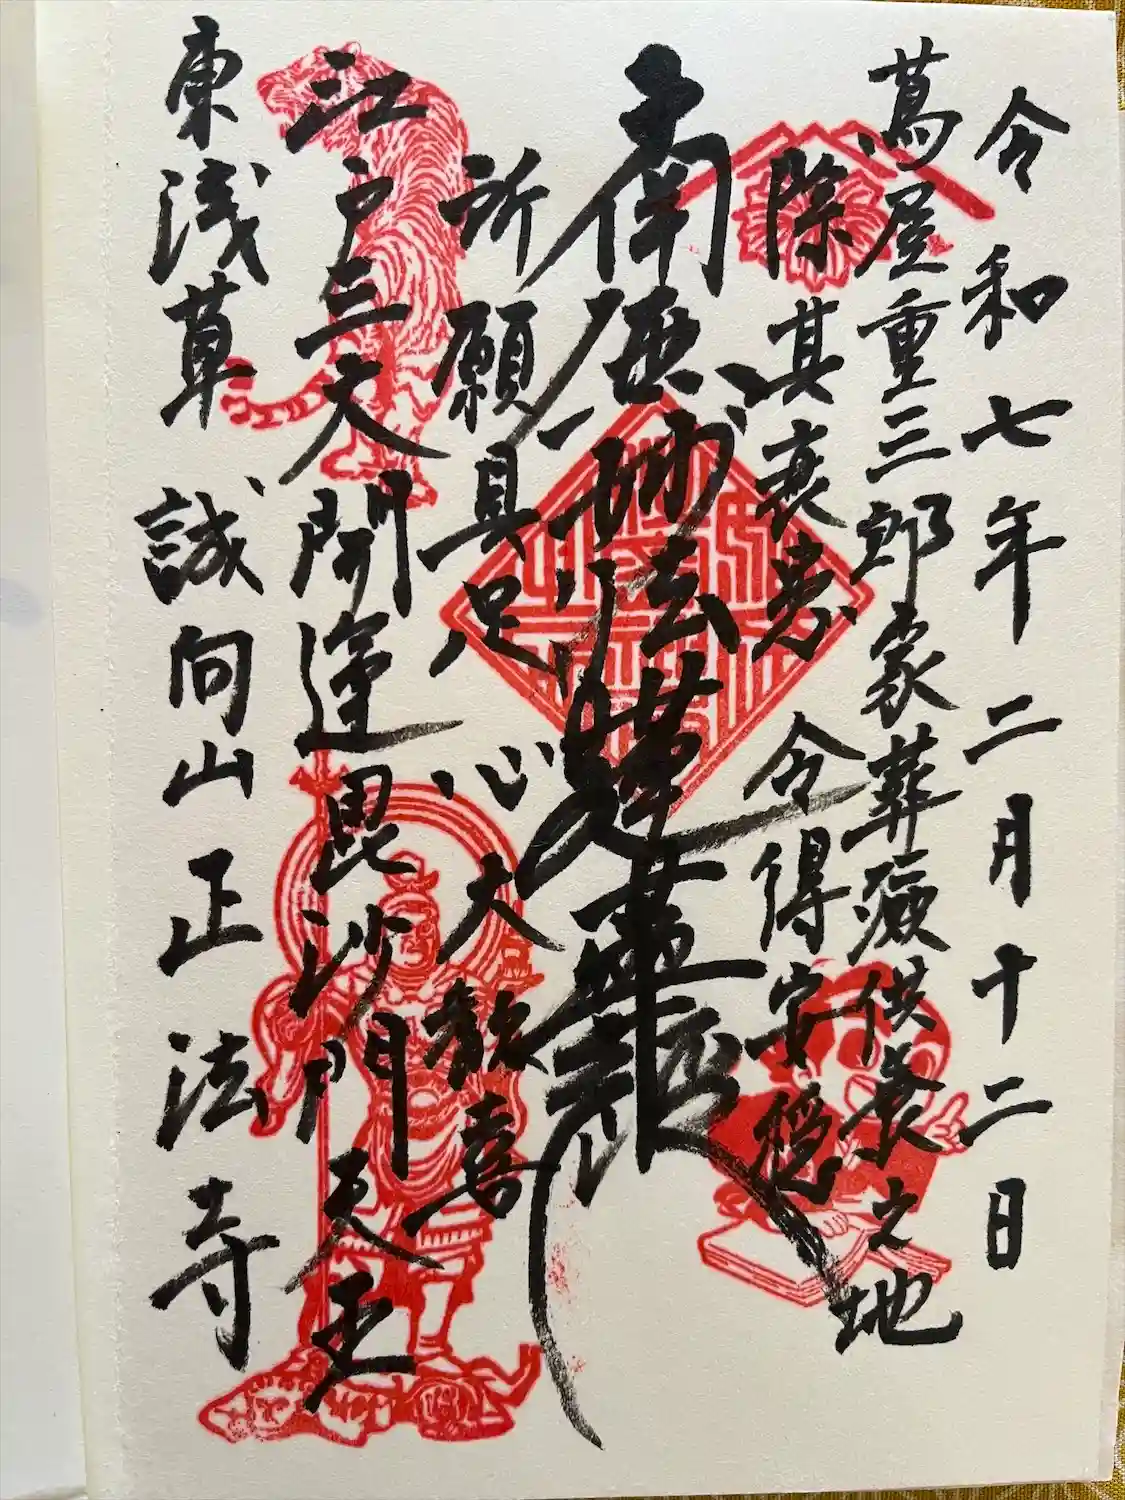 令和七年二月十二日
蔦屋重三郎家葬殮供養之地
除其衰患 令得安穏
南無妙法蓮華経
所願具足 心大歓喜
江戸三大開運毘沙門天王
東浅草 誠向山正法寺